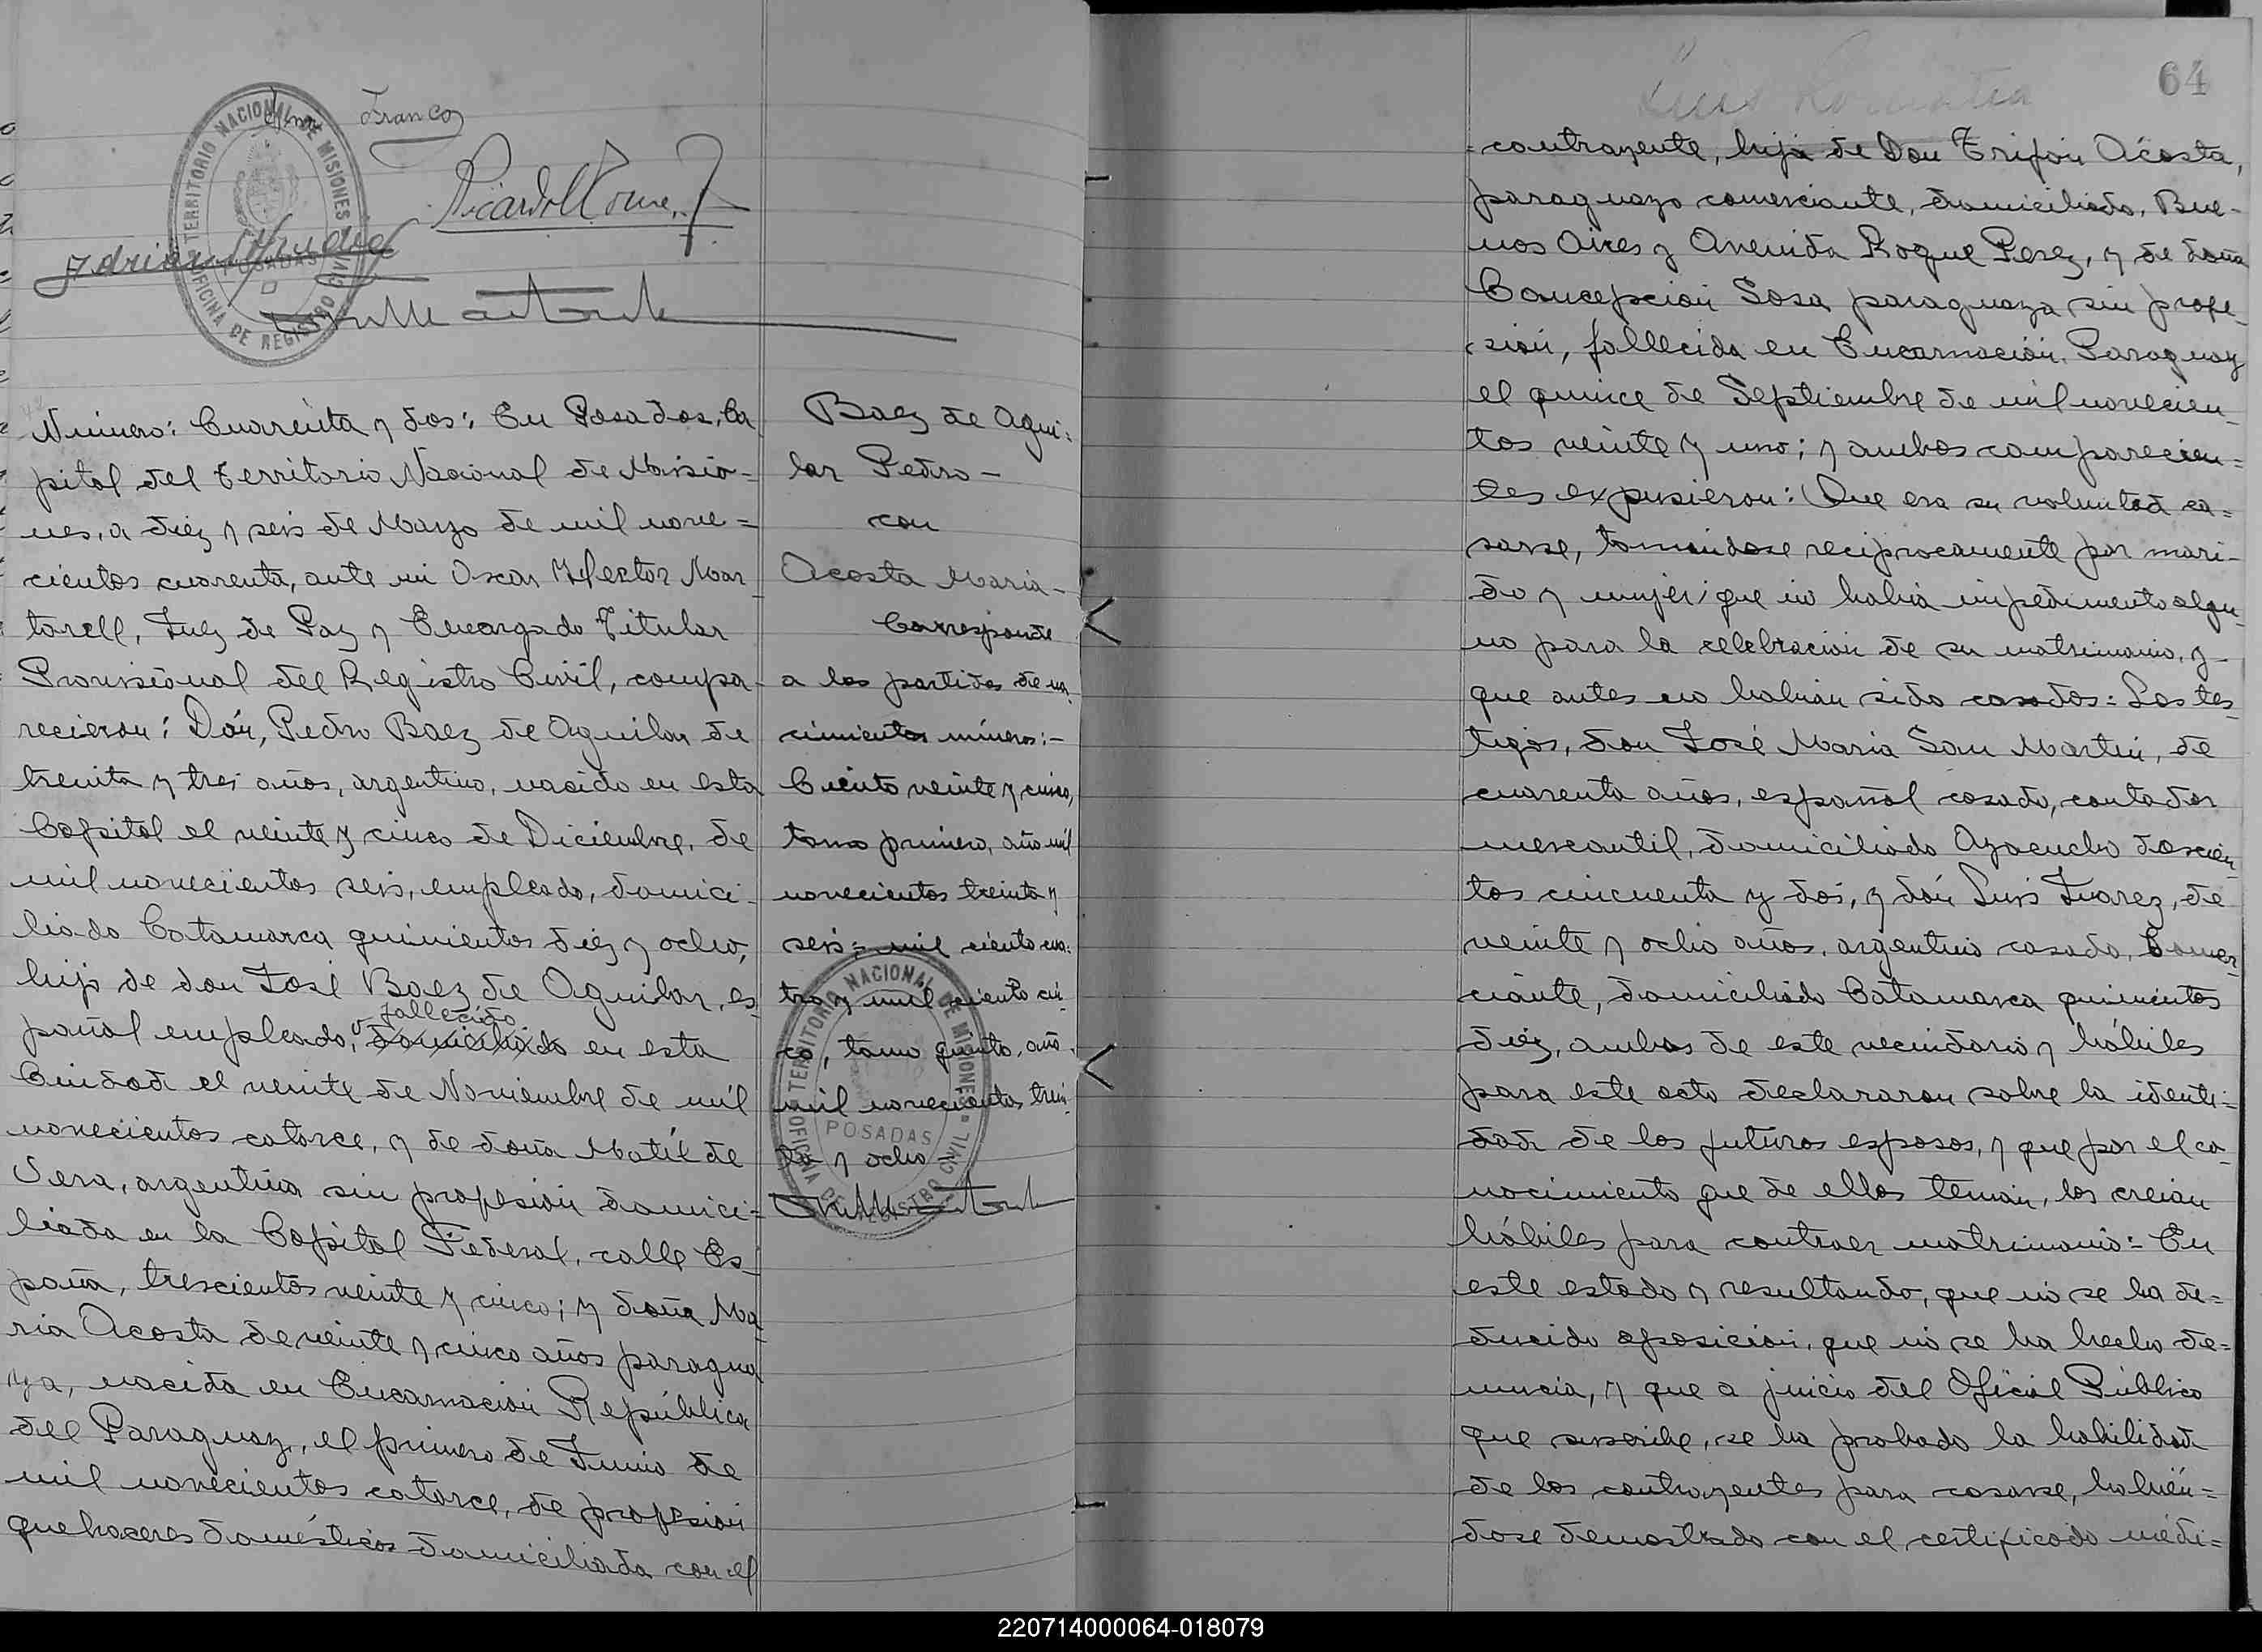 Franco
TERRITORIO NACIONAL DE MISIONES
OFICINA DE REGISTRO CIVIL
POSADAS
Número: Cuarenta y dos: En Posadas, Ca
pital del Territorio Nacional de Misio=
nes, a diéz y seis de Marzo de mil nove=
cientos cuarenta, ante mi Oscar Hector Mar
torell, Juez de Paz y Encargado Titular
Provisional del Registro Civil, compa-
recieron: Dón, Pedro Baez de Aguilar de
treinta y tres años, argentino, nacido en esta
Capital el veinte y cinco de Diciembre, de
mil novecientos seis, empleado, domici-
liado Catamarca quinientos diéz y ocho,
hijo de don José Baez de Aguilar, es-
pañol empleado, fallecido domiciliado en esta
Ciudad el veinte de Noviembre de mil
novecientos catorce, y de doña Matilde
Vera, argentina sin profesión domici=
liada en la Capital Federal, calle Es-
paña, trescientos veinte y cinco; y doña Ma
ria Acosta de veinte y cinco años paragua
ya, nacida en Encarnación República
del Paraguay, el primero de Junio de
mil novecientos catorce, de profesión
quehaceres domésticos domiciliada con el
Baez de Agui=
lar Pedro-
con
Acosta Maria-
Corresponde
a las partidas de na
cimientos números:-
Ciento veinte y cinco,
tomo primero, año mil
novecientos treinta y
seis= mil ciento cua=
tro y mil ciento cin
co, tomo quinto, año
mil novecientos trein
ta y ocho-
TERRITORIO NACIONAL DE MISIONES
OFICINA DE REGISTRO CIVIL
POSADAS
64
=contrayente, hija de Don Trifón Acosta,
paraguayo comerciante, domiciliado, Bue-
nos Aires y Avenida Roque Perez, y de doña
Concepción Sosa paraguaya sin profe-
sión, fallecida en Encarnación, Paraguay
el quince de Septiembre de mil novecien-
tos veinte y uno; y ambos comparecien=
tes expusieron: Que era su voluntad ca=
sarse, tomándose reciprocamente por mari-
do y mujer; que no habia impedimento algu-
no para la celebración de su matrimonio, y-
que antes no habian sido casados: Los tes-
tigos, don José Maria San Martin, de
cuarenta años, español casado, contador
mercantil, domiciliado Ayacucho doscien-
tos cincuenta y dos, y dón Luis Juarez, de
veinte y ocho años, argentino casado, Comer-
ciante, domiciliado Catamarca quinientos
diéz, ambos de este vecindario y hábiles
para este acto declararon sobre la identi=
dad de los futuros esposos, y que por el co-
nocimiento que de ellos tenian, los creian
hábiles para contraer matrimonio= En
este estado y resultando, que no se ha de=
ducido oposición, que no se ha hecho de=
nuncia, y que a juicio del Oficial Público
que suscribe, se ha probado la habilidad
de los contrayentes para casarse, habién=
dose demostrado con el certificado médi=
220714000064-018079